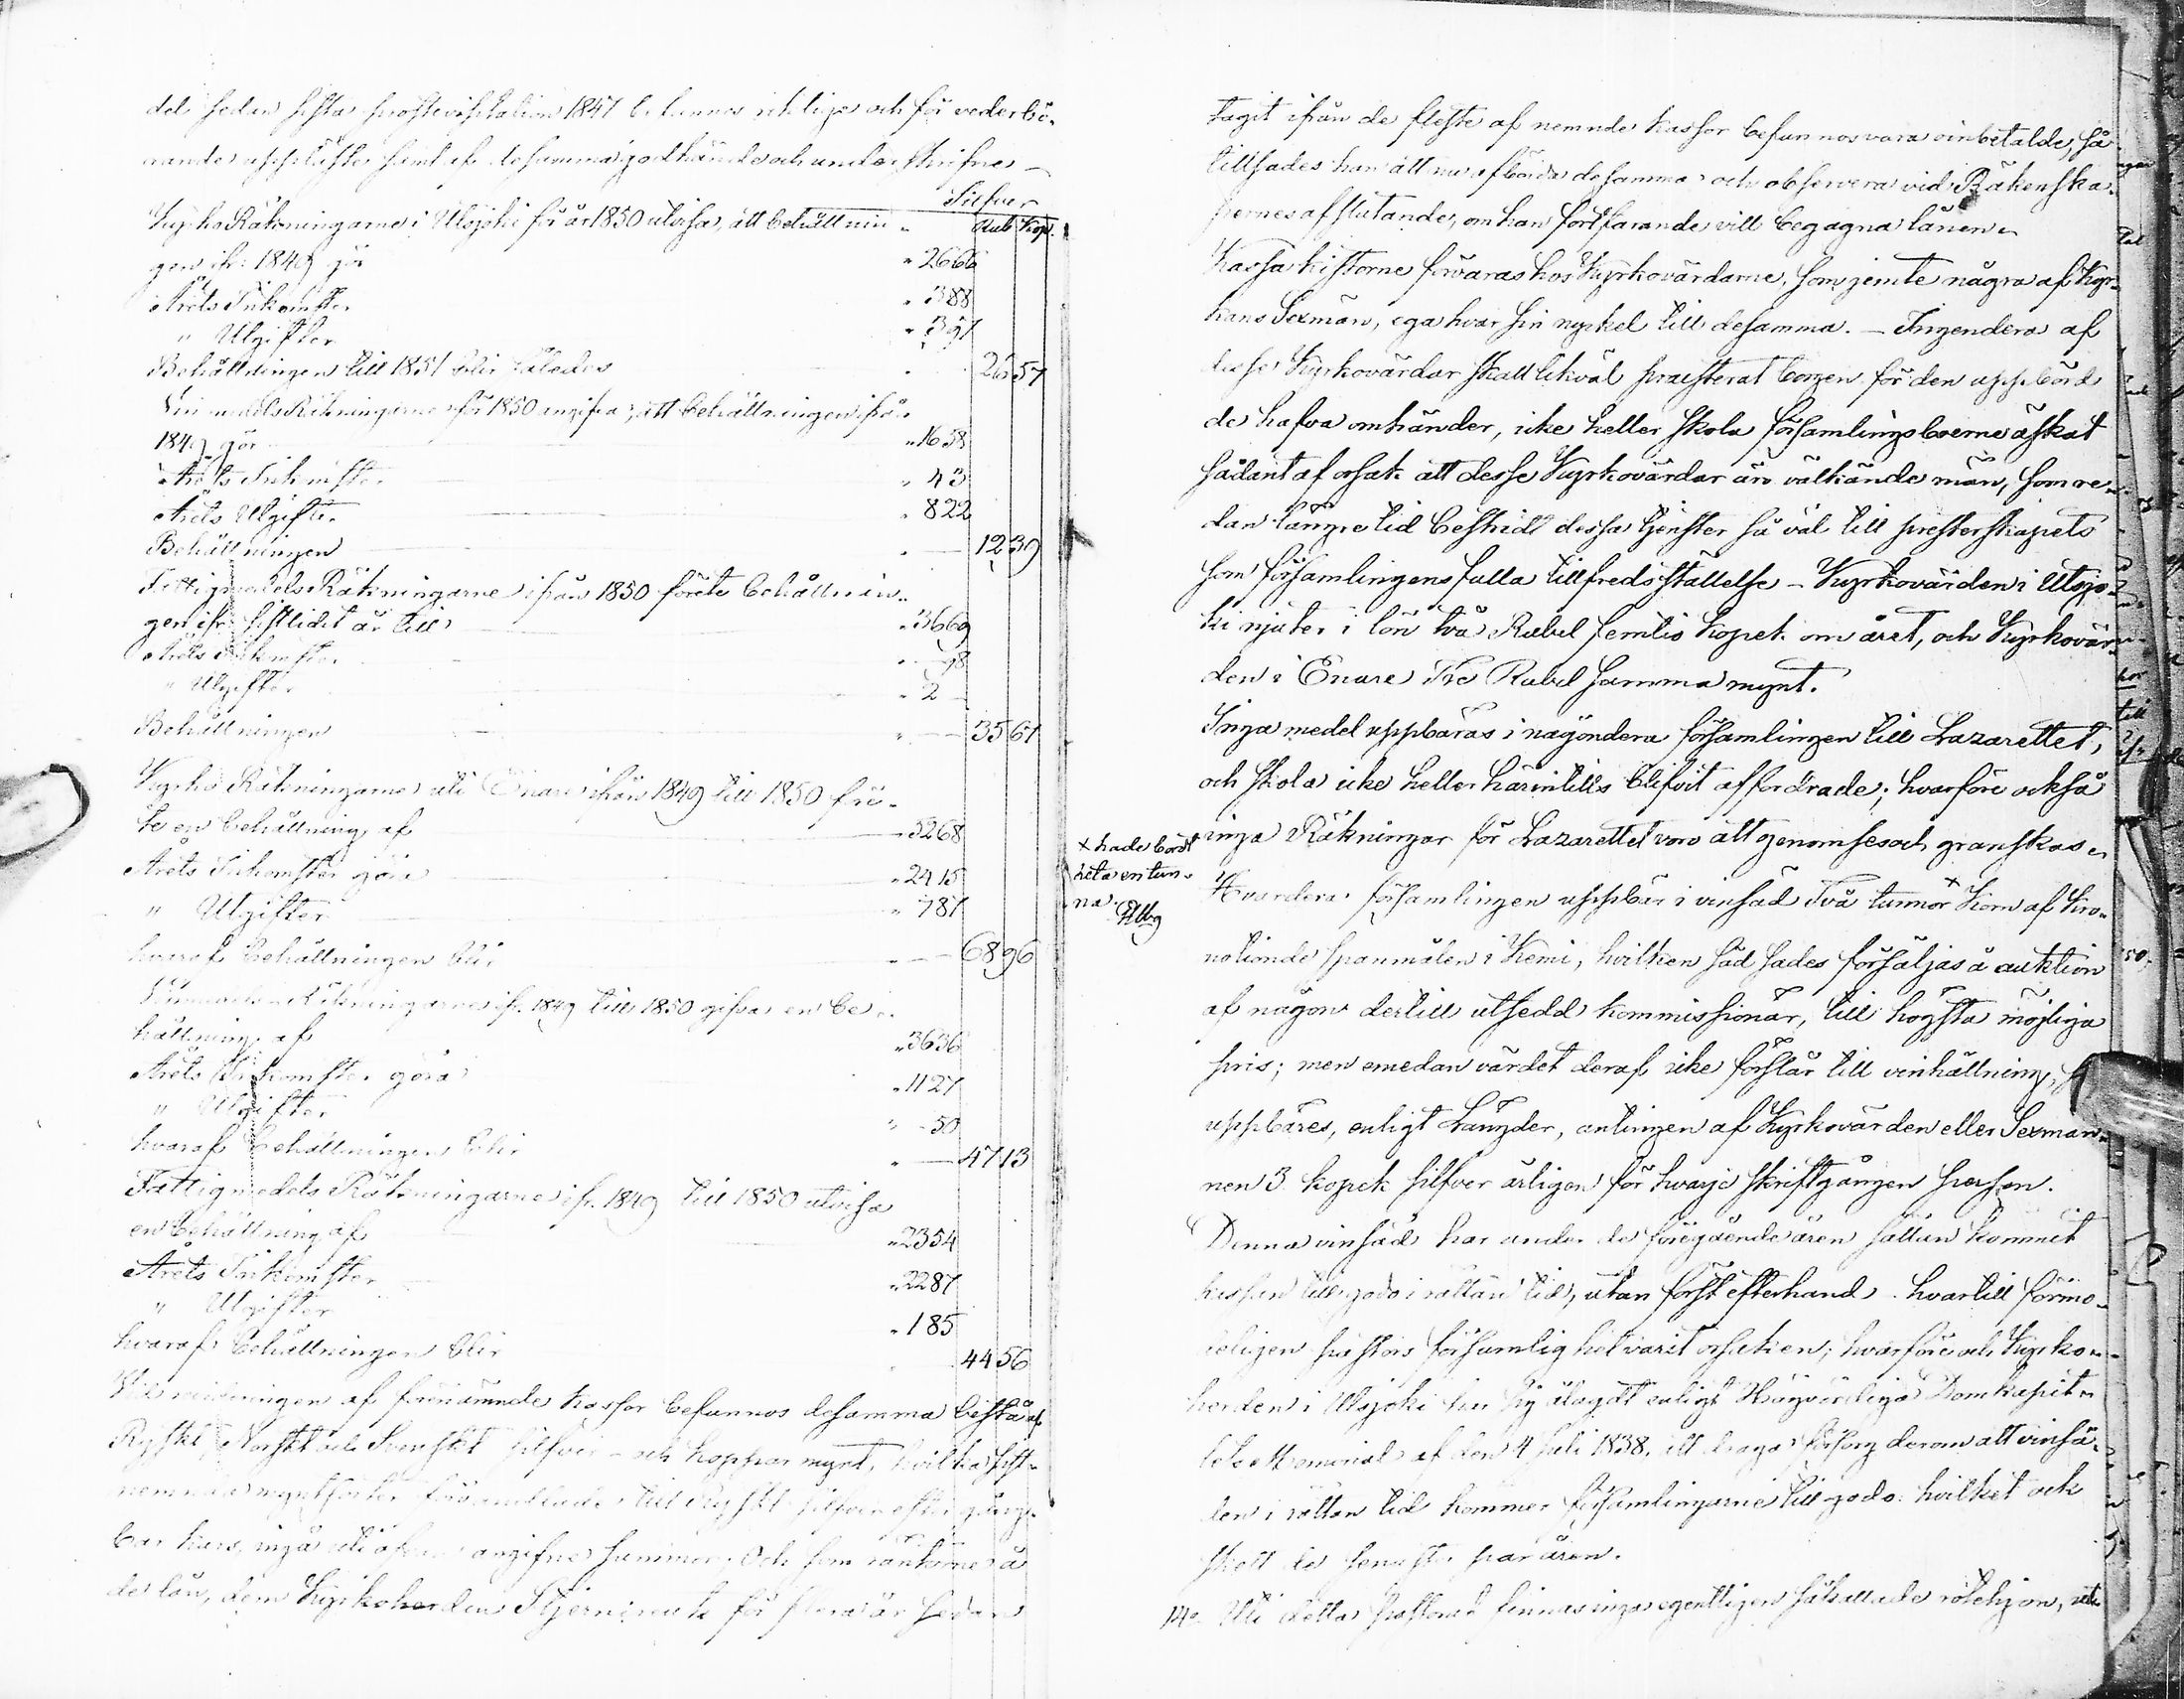 del sedan sista prostevisitation 1847 befunnos riktiga och för vederbö-
rande uppläste samt af desamma godkände och underskrifne –
Silfver
Rub Kop.
Kyrko Räkningarne i Utsjoki för år 1850 utvisa, att behållnin-
gen ifr. 1849 gör " 2666
Årets Inkomster " 388
" Utgifter " 397
Behållningen till 1851 blir således 2657
Vinmedels Räkningarne för 1850 angifva, att behållningen ifrån
1849 gör " 1658
Årets Inkomster " 43
Årets Utgifter " 822
Behållningen " — 1239
Fattigmedels Räkningarne ifrån 1850 förete behållnin-
gen ifr. sistlidit år till " 3669
Årets Inkomster " 98
" Utgifter " 2 –
Behållningen " — 3561
Kyrko Räkningarne uti Enare ifrån 1849 till 1850 före-
te en behållning af 5268
Årets Inkomster göra " 2415
" Utgifter " 787
hvaraf behållningen blir " — 6896
Räkningarne ifr. 1849 till 1850 gifva en be-
hållning af " 3636
Årets Inkomster göra " 1127
" Utgifter " - 50
hvaraf behållningen blir " — 4713
Fattigmedels Räkningarne ifr. 1849 till 1850 utvisa
en behållning af " 2354
Årets Inkomster " 2287
" Utgifter " 185
hvaraf behållningen blir 4456
Vid af förenämnde kassor befunnos desamma bestå af
Ryskt Norskt och Svenskt silfver – och koppar mynt, hvilka sist-
nemnda myntsorter förvandlade till Ryskt silfver efter gång-
bar kurs, ingå uti ofvan angifne summor. Och som räntorne å
de lån, dem Kyrkoherden Stjerncreutz för flera år sedan
tagit ifrån de fleste af nemnde kassor befunnos vara oinbetalde, så
tillsades han att nu afbörda desamma och observera vid Räkenska-
pernes afslutande, om han fortfarande vill begagna lånen.
Kassakistorne förvaras hos Kyrkovärdarne, som jemte några af Kyr-
kans Sexmän, ega hvar sin nyckel till desamma. – Ingendera af
desse Kyrkovärdar skall likväl præsterat borgen för den uppbörd
de hafva omhänder, icke heller skola församlingsboerne äskat
sådant af orsak att desse Kyrkovärdar äro välkände män, som re-
dan längre tid bestridt dessa tjenster så väl till presterskapets
som församlingens fulla tillfredsställelse – Kyrkovärden i Utsjo-
ki njuter i lön två Rubel femtio kopek om året, och Kyrkovär-
den i Enare Tre Rubel samma mynt.
Inga medel uppbäras i någondera församlingen till Lazarettet,
och skola icke heller härintills blifvit affordrade; hvarföre också
inga Räkningar för Lazarettet voro att genomses och granskas.
x hade bordt
heta en tun-
na.
Hvardera församlingen uppbär i vinsäd Två tunnor x Korn af Kro-
notionde spanmålen i Kemi, hvilken säd sades försäljas å auktion
af någon dertill utsedd kommissionär, till högsta möjliga
pris; men emedan värdet deraf icke förslår till vinhållning,
uppbäres, enligt Längder, antingen af Kyrkovärden eller Sexmän-
nen 3 kopek silfver årligen för hvarje skriftgången person.
Denna vinsäd har under de föregående åren sällan kommit
kassan till godo i rättan tid, utan först efterhand hvartill förmo-
deligen pastors försumlighet varit orsaken; hvarföre och Kyrko-
herden i Utsjoki ålagdt enligt Högvördiga Domkapit-
lets Memorial af den 4 Juli 1838, att draga försorg derom att vinsä-
den i rättan tid kommer församlingarne till godo. hvilket ock
skett de senaste par åren.
14o Uti detta pastorat finnas inga egentligen såkallade rotehjon, utan